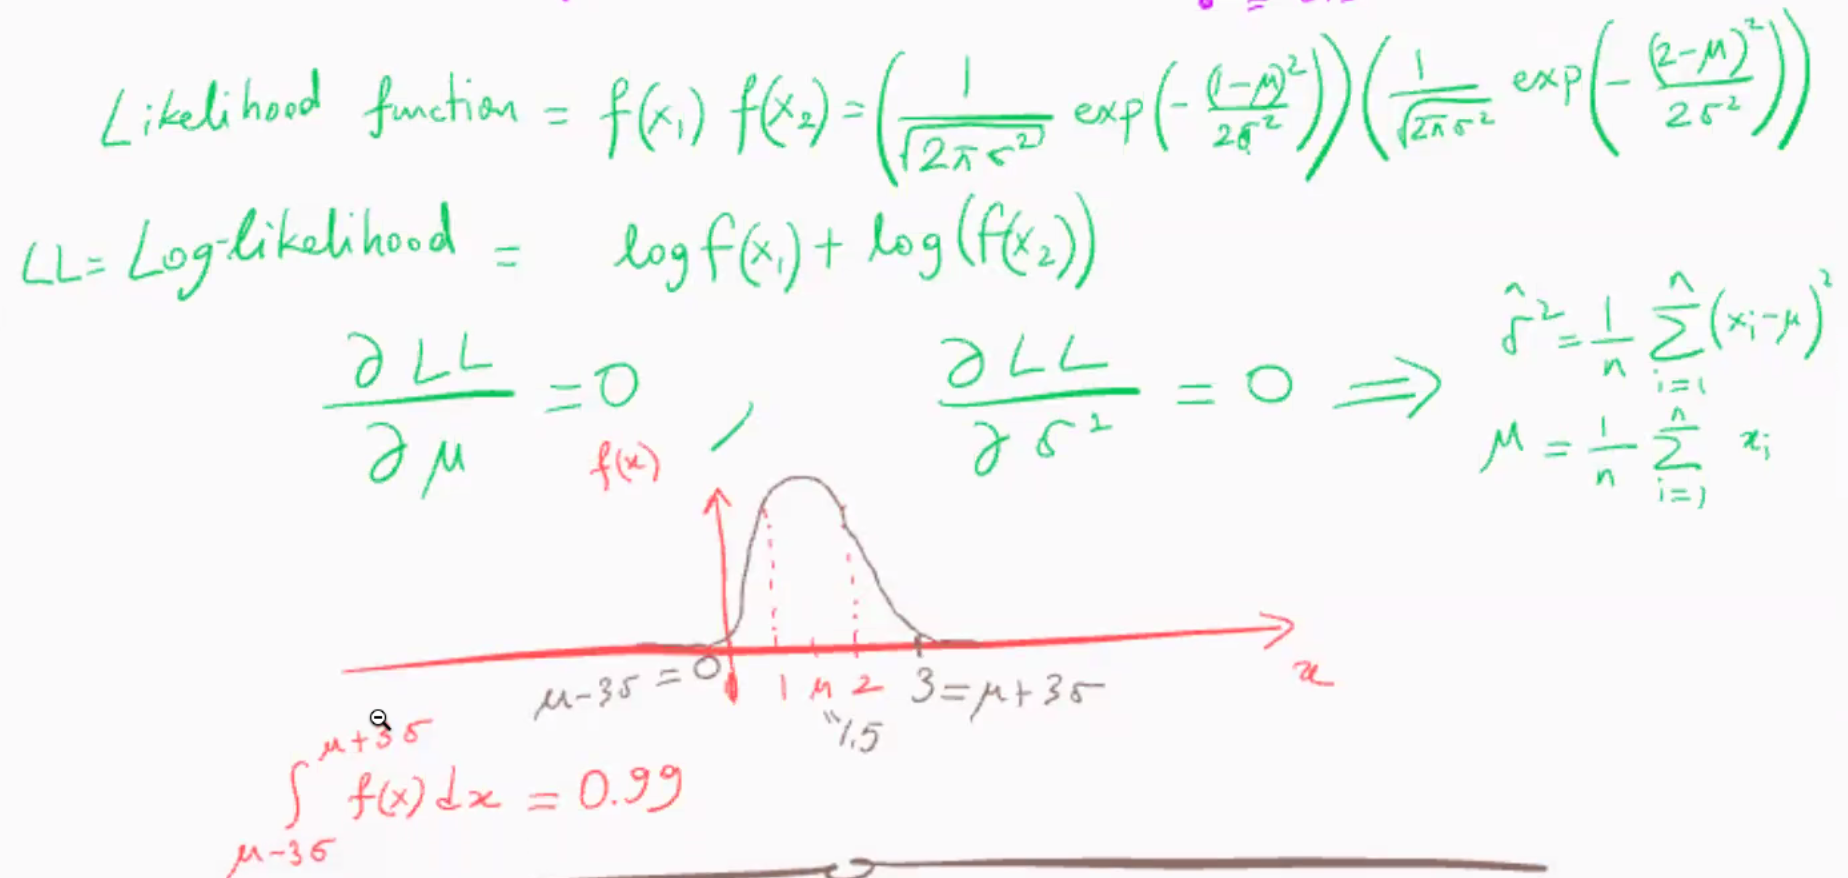 Likelihood function = f(x₁) f(x₂) = (1/√(2πσ²) exp(-(1-μ)²/2σ²)) (1/√(2πσ²) exp(-(2-μ)²/2σ²))
LL = Log-likelihood = log f(x₁) + log(f(x₂))
∂LL/∂μ = 0 , ∂LL/∂σ² = 0 ⟹ σ̂² = 1/n Σ_{i=1}^{n} (xᵢ-μ)²
μ = 1/n Σ_{i=1}^{n} xᵢ
f(x)
μ-3σ = 0 1 μ 2 3 = μ+3σ
"1.5
x
∫_{μ-3σ}^{μ+3σ} f(x) dx = 0.99